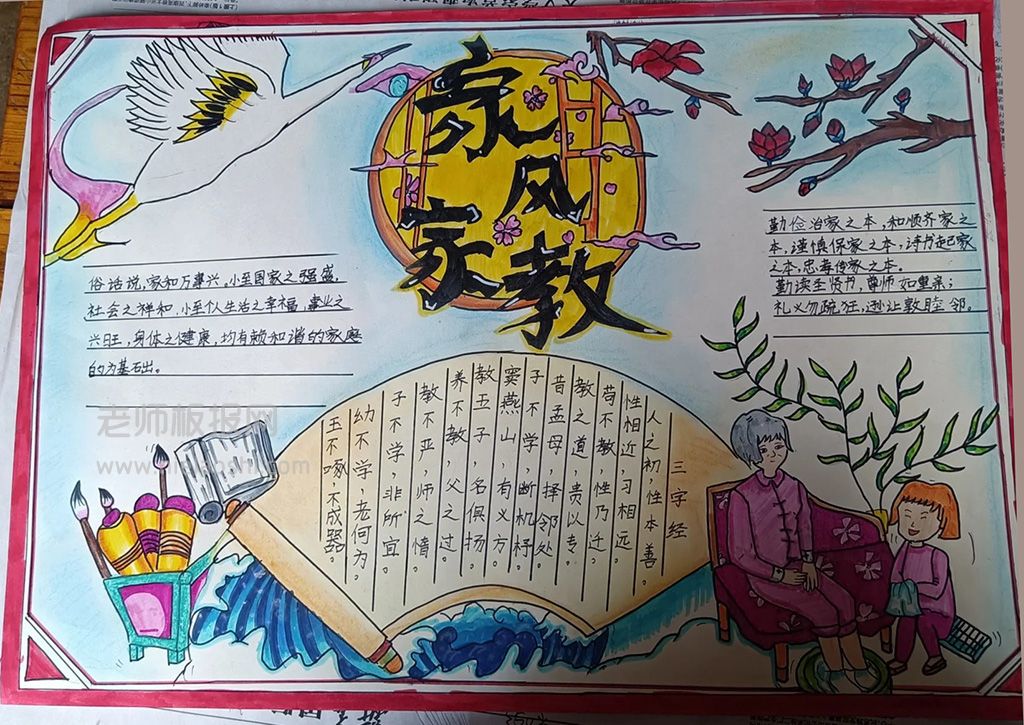 家风
家教
俗话说,家和万事兴。小至国家之强盛,
社会之祥和,小至个人生活之幸福,事业之
兴旺,身体之健康,均有赖和谐的家庭
的为基石出。
勤俭治家之本,和顺齐家之
本,谨慎保家之本,诗书起家
之本,忠孝传家之本。
勤读圣贤书,尊师如重亲;
礼义勿疏狂,逊让敦睦邻。
三字经
人之初,性本善。
性相近,习相远。
苟不教,性乃迁。
教之道,贵以专。
昔孟母,择邻处。
子不学,断机杼。
窦燕山,有义方。
教五子,名俱扬。
养不教,父之过。
教不严,师之惰。
子不学,非所宜。
幼不学,老何为。
玉不啄,不成器。
老师板报网